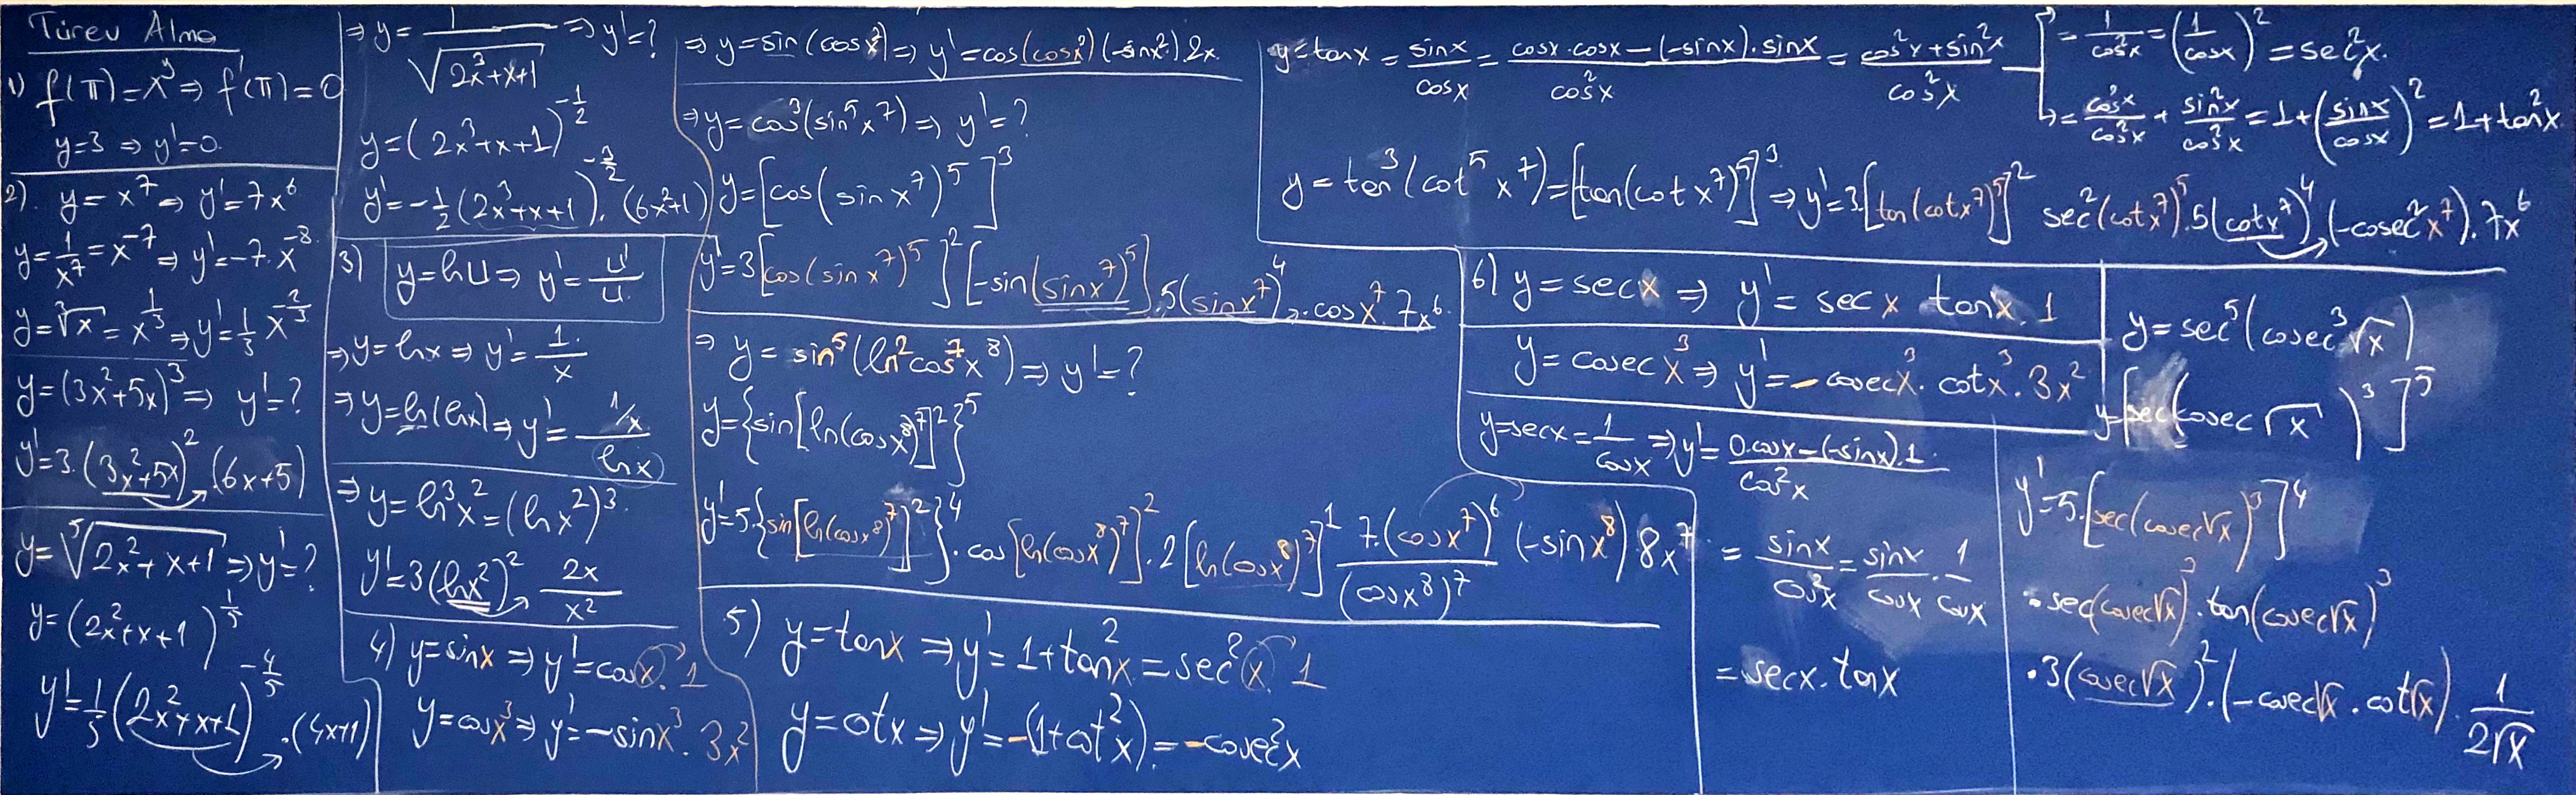 Türev Alma
1) f(π)=x^y ⇒ f'(π)=0
y=3 ⇒ y'=0
2) y=x^7 ⇒ y'=7x^6
y=1/x^7=x^-7 ⇒ y'=-7.x^-8
y=∛x=x^(1/3) ⇒ y'=1/3 x^(-2/3)
y=(3x^2+5x)^3 ⇒ y'=?
y'=3.(3x^2+5x)^2.(6x+5)
y=⁵√(2x^2+x+1) ⇒ y'=?
y=(2x^2+x+1)^(1/5)
y'=1/5(2x^2+x+1)^(-4/5).(4x+1)
⇒ y=1/√(2x^3+x+1) ⇒ y'=?
y=(2x^3+x+1)^(-1/2)
y'=-1/2(2x^3+x+1)^(-3/2).(6x^2+1)
3) y=ln u ⇒ y'=u'/u
⇒ y=lnx ⇒ y'=1/x
⇒ y=ln(lnx) ⇒ y'=(1/x)/(lnx)
⇒ y=ln^3x^2=(lnx^2)^3
y'=3(lnx^2)^2 2x/x^2
4) y=sinx ⇒ y'=cosx.1
y=cosx^3 ⇒ y'=-sinx^3.3x^2
⇒ y=sin(cosx^2) ⇒ y'=cos(cosx^2)(-sinx^2).2x
⇒ y=cos^3(sin^5x^7) ⇒ y'=?
y=[cos(sinx^7)^5]^3
y'=3[cos(sinx^7)^5]^2[-sin(sinx^7)^5].5(sinx^7)^4.cosx^7.7x^6
⇒ y=sin^5(ln^2cos^7x^8) ⇒ y'=?
y={sin[ln(cosx^8)^7]^2}^5
y'=5.{sin[ln(cosx^8)^7]^2}^4.cos[ln(cosx^8)^7]^2.2[ln(cosx^8)^7]^1 7.(cosx^7)^6/(cosx^8)^7 (-sinx^8)8x^7
5) y=tanx ⇒ y'=1+tan^2x=sec^2x.1
y=cotx ⇒ y'=-(1+cot^2x)=-cosec^2x
y=tanx=sinx/cosx=(cosx.cosx-(-sinx).sinx)/cos^2x=(cos^2x+sin^2x)/cos^2x
=1/cos^2x=(1/cosx)^2=sec^2x.
=cos^2x/cos^2x+sin^2x/cos^2x=1+(sinx/cosx)^2=1+tan^2x
y=tan^3(cot^5x^7)=[tan(cotx^7)^5]^3 ⇒ y'=3.[tan(cotx^7)^5]^2 sec^2(cotx^7)^5.5(cotx^7)^4(-cosec^2x^7).7x^6
6) y=secx ⇒ y'=secx tanx.1
y=cosecx^3 ⇒ y'=-cosecx^3.cotx^3.3x^2
y=secx=1/cosx ⇒ y'=(0.cosx-(-sinx).1)/cos^2x
=sinx/cos^2x=sinx/cosx.1/cosx
=secx.tanx
y=sec^5(cosec^3√x)
y=[sec(cosec√x)^3]^5
y'=5.[sec(cosec√x)^3]^4
.sec(cosec√x)^3.tan(cosec√x)^3
.3(cosec√x)^2.(-cosec√x.cot√x).1/2√x